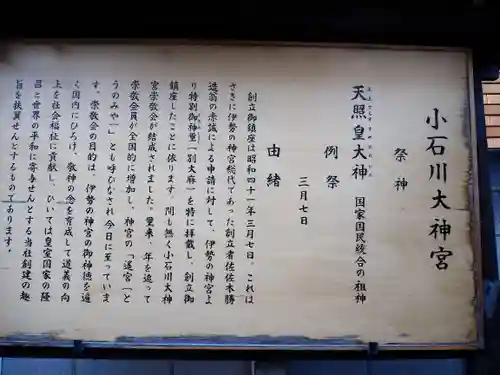 小石川大神宮
祭神
あまてらすすめおおかみ
天照皇大神 国家国民統合の祖神
例祭
三月七日
由緒
創立御鎮座は昭和四十一年三月七日。これは
さきに伊勢の神宮総代であった創立者佐佐木勝
造翁の赤誠による申請に対して、伊勢の神宮よ
り特別御神璽「別大麻」を特に拝戴し、創立御
鎮座したことに依ります。間も無く小石川大神
宮崇敬会が結成されました。爾来、年を追って
崇敬会員が全国的に増加し、神宮の「遙宮」（と
うのみや）とも呼びなされ今日に至っていま
す。崇敬会の目的は、伊勢の神宮の御神徳を遍
く国内にひろげ、敬神の念を育成して道義の向
上を社会福祉に貢献し、ひいては皇室国家の隆
昌と世界の平和に寄与せんとする当社創建の趣
旨を扶翼せんとするものであります。